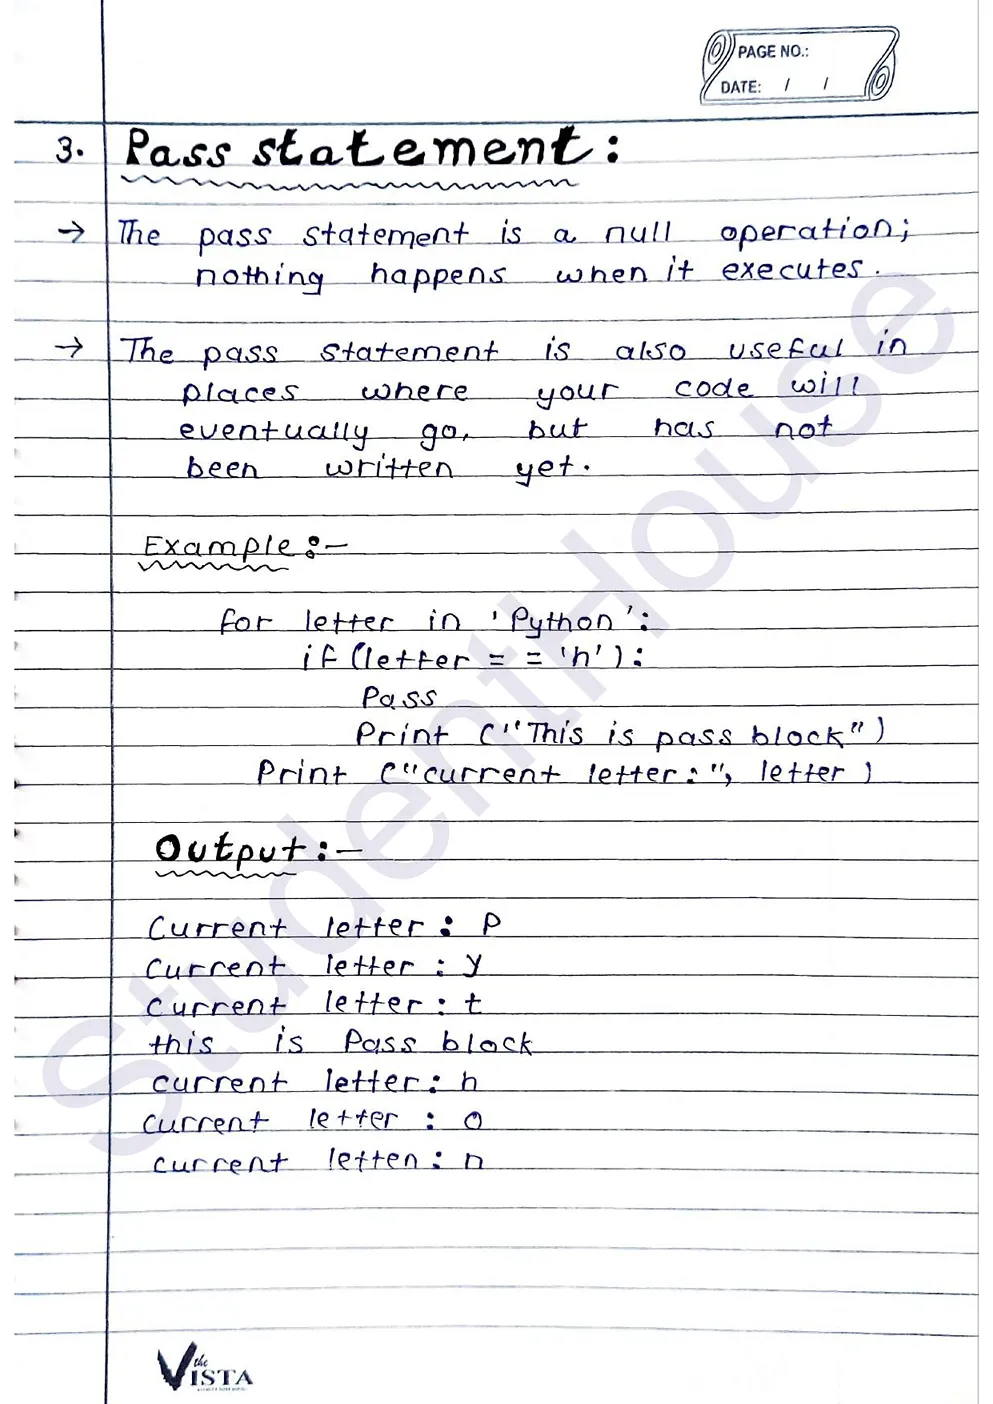 PAGE NO.:
DATE: / /
3. Pass statement:
→ The pass statement is a null operation;
nothing happens when it executes.
→ The pass statement is also useful in
places where your code will
eventually go, but has not
been written yet.
Example:-
for letter in 'Python':
if (letter = = 'h'):
Pass
Print ("This is pass block")
Print ("current letter:", letter)
Output:-
Current letter: P
Current letter: y
Current letter: t
this is Pass block
current letter: h
current letter: o
current letten: n
the VISTA
StudentHouse